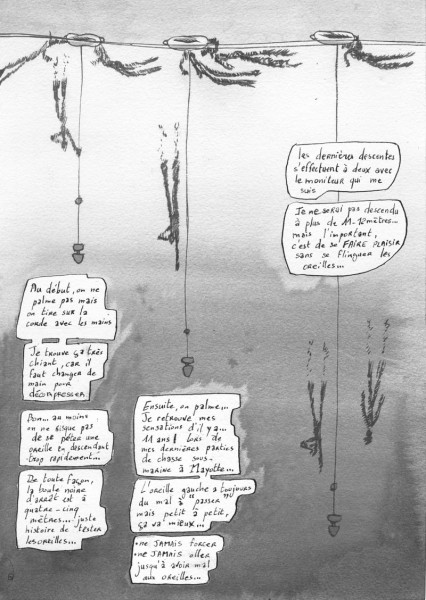 Au début, on ne
palme pas mais
on tire sur la
corde avec les mains
Je trouve ça très
chiant, car il
faut changer de
main pour
décompresser
Bon... au moins,
on ne risque pas
de se péter une
oreille en descendant
trop rapidement...
De toute façon,
la toute
d'arrêt est à
quatre-cinq
mètres... juste
histoire de tester
les oreilles...
Ensuite, on palme...
Je retrouve mes
sensations d'il y a...
11 ans! Lors de
mes dernières parties
de chasse sous-
marine à Mayotte...
L'oreille gauche a toujours
du mal à "passer"
mais petit à petit,
ça va mieux...
•ne JAMAIS forcer
•ne JAMAIS aller
jusqu'à avoir mal
aux oreilles...
les dernières descentes
s'effectuent à deux avec
le moniteur qui me
suis
Je ne serai pas descendu
à plus de 11-12 mètres...
mais l'important,
c'est de se FAIRE PLAISIR
sans se flinguer les
oreilles...